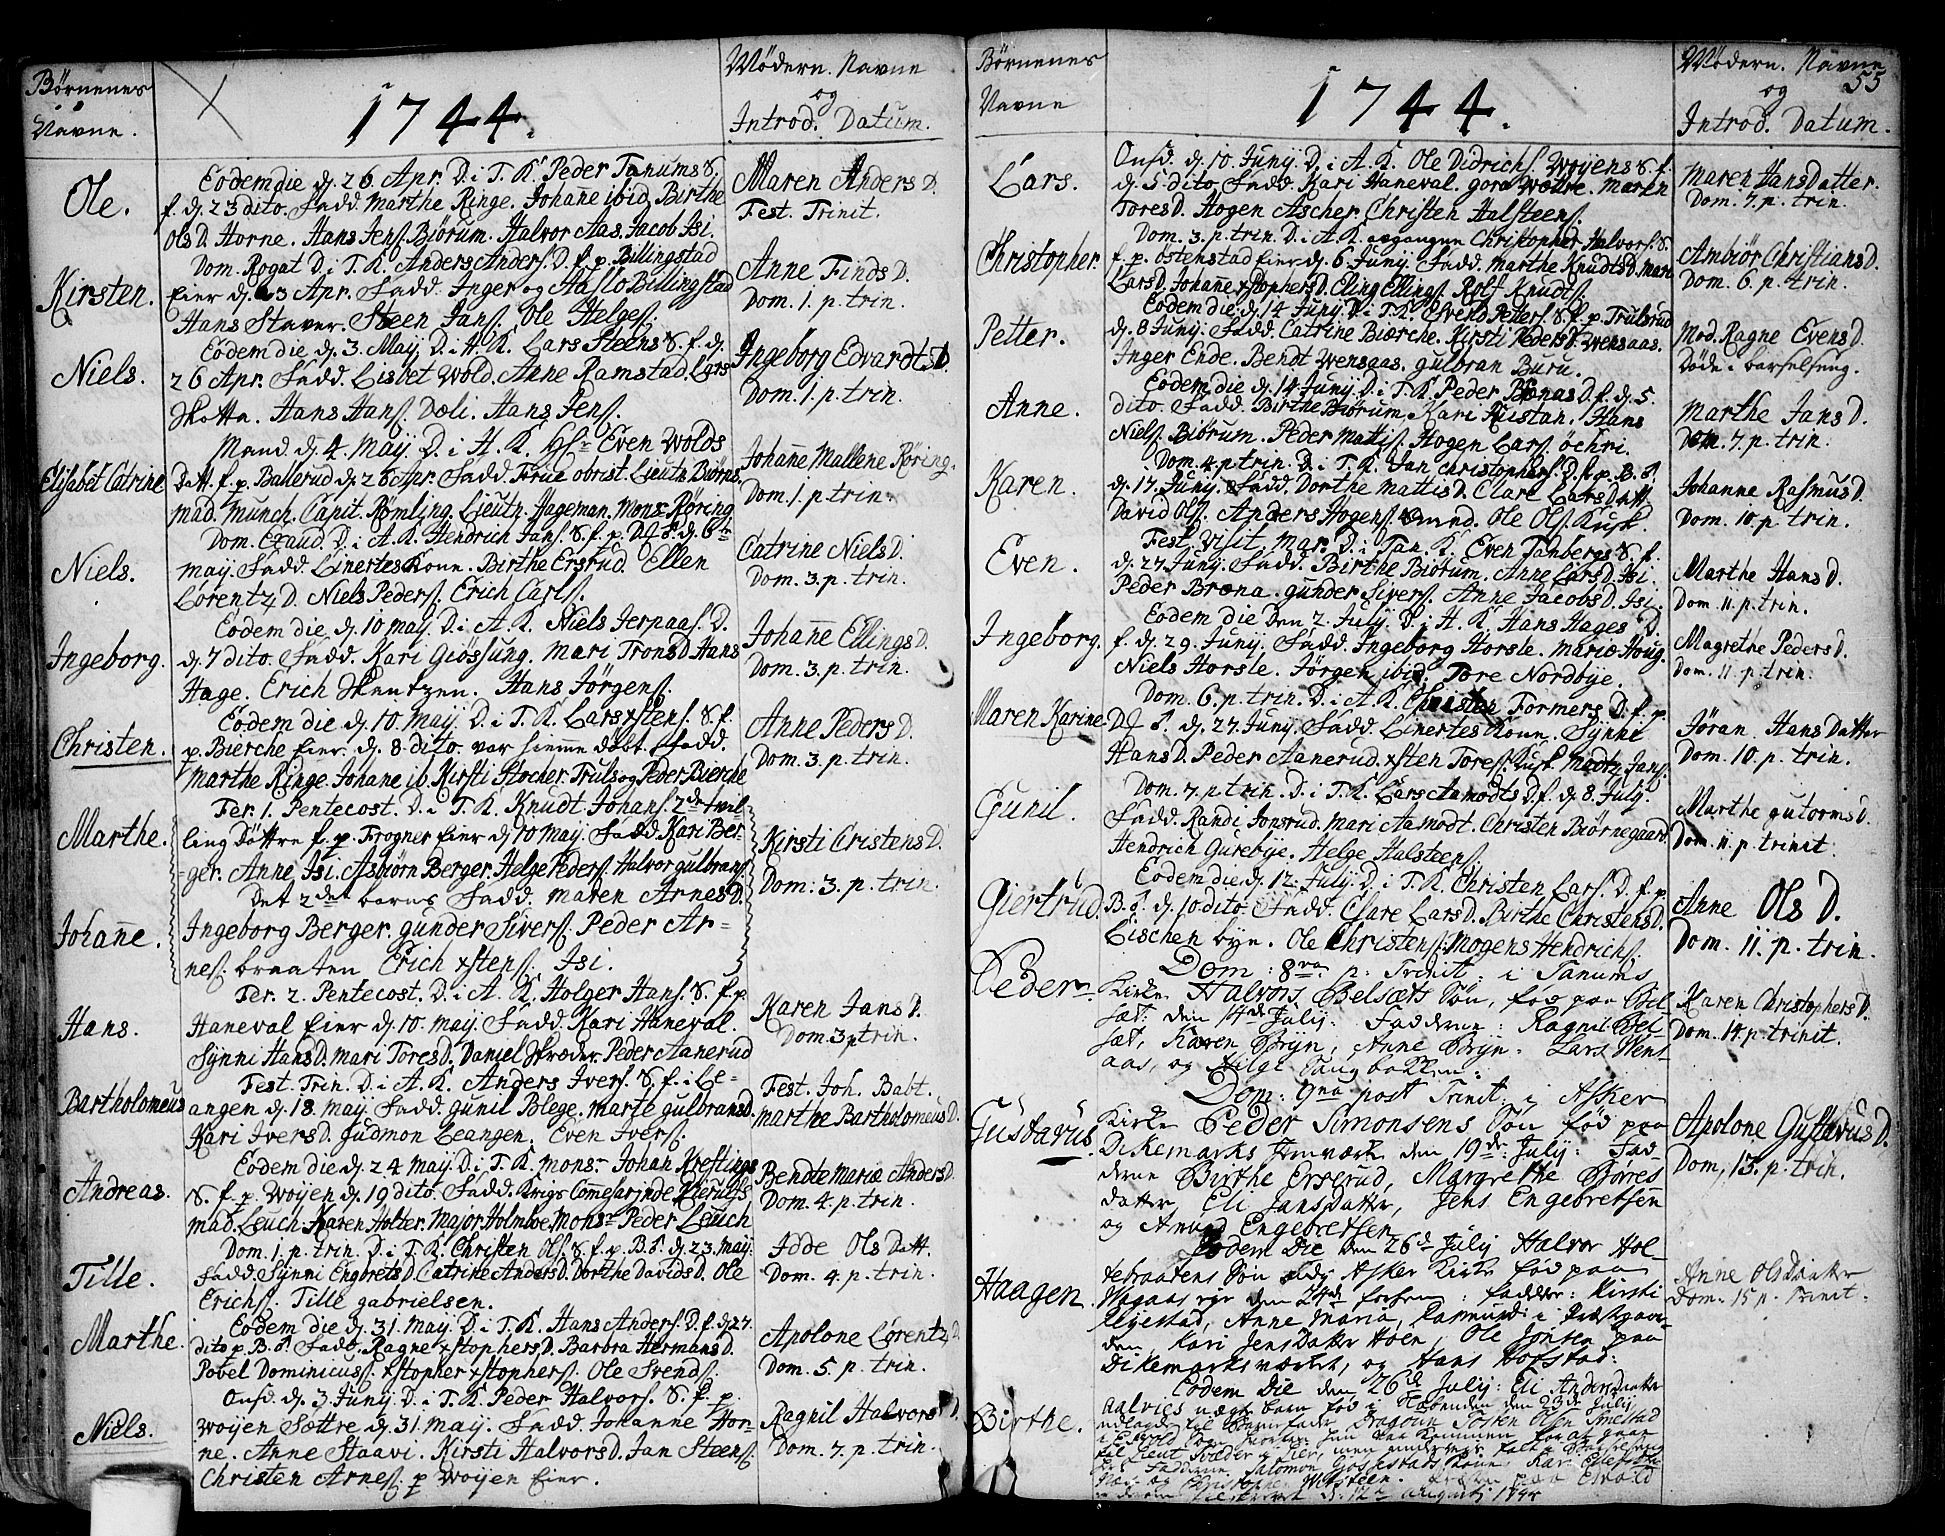 Børnenes
Navne.
1744.
Mødern. Navne
og
Introd. Datum.
Ole.
Eodem die d. 26. Apr. D. i T. K. Peder Tanums S.
f. d. 23 dito. Fadd. Marthe Ringe. Johañe ibid. Birthe
Ols D. Horne. Hans Jens. Biørum. Halvor Aas. Jacob Isi.
Maren Anders D.
Fest. Trinit.
Kirsten.
Dom. Rogat D. i T. K. Anders Anders. D. f. p. Billingstad
Eier d. 23 Apr. Fadd. Inger og Aaslo Billingstad
Hans Staver. Steen Jans. Ole Helges.
Anne Finds D.
Dom. 1. p. trin.
Niels.
Eodem die d. 3. May D. i A. K. Lars Steens S. f. d.
26 Apr. Fadd. Lisbet Wold. Anne Ramstad. Lars
Skotta. Hans Hans. Dæli. Hans Jens.
Ingeborg Edvardts D.
Dom. 1. p. trin.
Elisabet Catrine
Mand. d. 4. May. D. i A. K. Hr. Even Wolds
Datt. f. p. Ballerud d. 26 Apr. Fadd. Frue obrist. Lieutn. Biørns.
mad. Munch. Capit. Rømling. Lieutn. Hageman. Mons. Røring
Johañe Mallene Røring.
Dom. 1. p. trin.
Niels.
Dom. Exaud. D. i A. K. Hendrich Jans. S. f. p. d. 6te
may. Fadd. Linertes Kone. Birthe Ersrud. Ellen
Lorentz D. Niels Peders. Erich Carls.
Catrine Niels D.
Dom. 3. p. trin.
Ingeborg.
Eodem die d. 10 may. D. i A. K. Niels Jerpaas. D.
d. 7 dito. Fadd. Kari Giøssung. Mari Trons D. Hans
Hage. Erich Skentzen. Hans Jørgens.
Johañe Ellings D.
Dom. 3. p. trin.
Christen.
Eodem die d. 10 may. D. i T. K. Lars xstens. S. f.
p. Bierche Eier. d. 8 dito. var hiemme døbt. Fadd.
Marthe Ringe. Johane ib. Kirsti Stocher. Truls og Peder Bierche
Anne Peders D.
Dom. 3. p. trin.
Marthe.
Fer. 1. Pentecost. D. i T. K. Knudt Johans. 2de tvil-
ling Døttre f. p. Frogner Eier d. 10 may. Fadd. Kari Ber-
ger. Anne Isi. Asbiørn Berger. Helge Peders. Halvor gulbrans.
Kirsti Cristens D.
Dom. 3. p. trin.
Johañe.
Det 2det barns Fadd. Maren Arnes D.
Ingeborg Berger. gunder Sivers. Peder Ar-
nes. braaten Erich xstens. Isi.
Hans.
Fer. 2. Pentecost. D. i A. K. Holger Hans. S. f. p.
Haneval Eier d. 10. may. Fadd. Kari Haneval.
Synni Hans D. Mari Tores D. Daniel Skræder. Peder Aanerud
Karen Jans D.
Dom 3 p trin.
Bartholomeus
Fest. Trin. D. i A. K. Anders Ivers. S. f. i Le-
angen d. 18. may. Fadd. gunil Blege. Marte gulbrans D.
Kari Ivers D. gudmon Leangen. Even Ivers.
Fest. Joh. Babt.
Marthe Bartholomeus D.
Andreas.
Eodem die d. 24 may. D. i T. K. mons. Johan Kreftings
S. f. p. Woyen d. 19 dito. Fadd. Krigs Commesarinde
mad. Leuch. Karen Holter. Major Holmboe. Monsr. Peder Leuch
Bendte Mariæ Anders D.
Dom. 4. p. trin.
Tille.
Dom. 1. p. trin. D. i T. K. Christen Ols. S. f. p. B. d. 23. may.
Fadd. Synni Engbrets D. Catrine Anders D. Dorthe Davids D. Ole
Erichs. Tille gabrielsen.
Idde Ols Datt.
Dom. 4. p. trin.
Marthe.
Eodem die d. 31. may. D. i T. K. Hans Anders. D. f. d. 27.
dito p. B. Fadd. Ragne xstophers D. Barbra Hermans D.
Povel Dominicus. xstopher xstophers. Ole Svends.
Apolone Lorentz D.
Dom. 5. p. trin.
Niels.
Onsd. d. 3 Juny. D. i T. K. Peder Halvors. S. f. p.
Woyen Sættre. d. 31. may. Fadd. Johanne Hor-
ne. Anne Staavi. Kirsti Halvors D. Jan Steens.
Christen Arnes. p. Woyen Eier.
Ragnil Halvors D.
Dom. 7. p. trin.
Børnenes
Navne
1744.
Mødern. Navne
55
og
Introd. Datum.
Lars.
Onsd. d. 10. Juny. D. i A. K. Ole Didrichs. Woyens S. f.
d. 5 dito. Fadd. Kari Haneval. goro Wættre. Maren
Tores D. Hogen Ascher. Christen Halsteens.
Maren Hans Datter.
Dom. 7. p. trin.
Christopher.
Dom. 3. p. trin. D. i A. K. Christopher Halvors. S.
f. p. Ostenstad Eier d. 6 Juny. Fadd. Marthe Knudts D. Mari
Lars D. Johañe xstophers D. Eling Ellings. Rolf Knudts.
Ambiør Christians D.
Dom. 6. p. trin.
Petter.
Eodem die d. 14 Juny. D. i T. K. Svend Petters. S. f. p. Trulsrud
d. 8 Juny. Fadd. Catrine Bierche. Kirsti Peders D. Wensaas.
Inger Ende. Bendt Wensaas. gulbran Buru.
Mod. Ragne Evens D.
Døde i barselseng.
Anne.
Eodem die d. 14 Juny. D. i T. K. Peder Brenas D. f. d. 5.
dito. Fadd. Birthe Biørum. Kari Kustan. Hans
Niels. Biørum. Peder Mattis. Hogen Lars. Oehri.
Marthe Jans D.
Dom. 7. p. trin.
Karen.
Dom. 4. p. trin. D. i T. K. Jan Christophers. D. f. p. B.
d. 17. Juny. Fadd. Dorthe Mattis D. Clare Lars Datt.
David Ols. Anders Hogens. Ole Ols. Kusk
Johanne Rasmus D.
Dom. 10. p. trin.
Even.
Fest. Visit. Mar. D. i Tan. K. Even Tanbergs S. f.
d. 27 Juny. Fadd. Birthe Biørum. Anne Lars D. Isi.
Peder Bræna. gunder Sivers. Anne Jacobs D. Isi.
Marthe Hans D.
Dom. 11. p. trin.
Ingeborg.
Eodem die den 2. July. D. i A. K. Hans Hages D.
f. d. 29. Juny. Fadd. Ingeborg Horsle. Mariæ Houg.
Niels Horsle. Jørgen ibid. Tore Nordbye.
Magrethe Peders D.
Dom. 11. p. trin.
Maren Karine
Dom. 6. p. trin. D. i A. K. Christen Formers D. f. p.
d. 27. Juny. Fadd. Linertes Kone. Synne
Hans D. Peder Aanerud. xsten Tores. Kusk. Jans.
Jøran Hans Datter
Dom. 10. p. trin.
Gunil.
Dom. 7. p. trin. D. i T. K. Lars Aamodts D. f. d. 8. July.
Fadd. Randi Jonsrud. Mari Aamodt. Christen Biørnegaard
Hendrich Gurebye. Helge Halsteens.
Marthe gutorms D.
Dom. 11. p. trinit.
Giertrud.
Eodem die. d. 12. July. D. i T. K. Christen Lars. D. f. p.
B. d. 10 dito. Fadd. Clare Lars D. Birthe Christens D.
Lischen byn. Ole Christens. Mogens Hendrichs.
Anne Ols D.
Dom. 11. p. trin.
Peder
Dom: 8va p. Trinit: i Tanums
Kirke Halvors Belsæts Søn, fød paa Bel-
sæt: den 14de July: Faddere: Ragnil Bel-
sæt, Karen Bryn, Anne Bryn. Lars Wens-
aas, og Helge Haugbakken:
Karen Christophers D.
Dom. 14. p. trinit.
Gustavus.
Dom: 9na post Trinit: i Asker
Kirke Peder Simonsens Søn fød paa
Dikemarks Jernværk den 19de July: Fad-
derne Birthe Erserud, Margrethe Børres
datter, Eli Jansdatter, Jens Engebretsen
og Amund Engebretsen
Apolone Gustavus D.
Dom, 13. p. trin.
Haagen.
Eodem Die den 26de July Halvor Hol-
tebraatens Søn udj Asker Kirke fød paa
den 24de : Fadder: Kirsti
Anne Maria, Rasmus i Præstgaar-
den, Kari Jensdatter Hoen, Ole Jonsen paa
Dikemarksværket, og Hans Hofstad:
Anne Olsdatter
Dom: 15 p. Trinit.
Birthe.
Eodem Die den 26de July: Eli Andersdatter
Aalvies uægte barn fød i den 23de July,
udlagde til Barnefader Dragoun Torsten Olsen
12te Augusti 1744